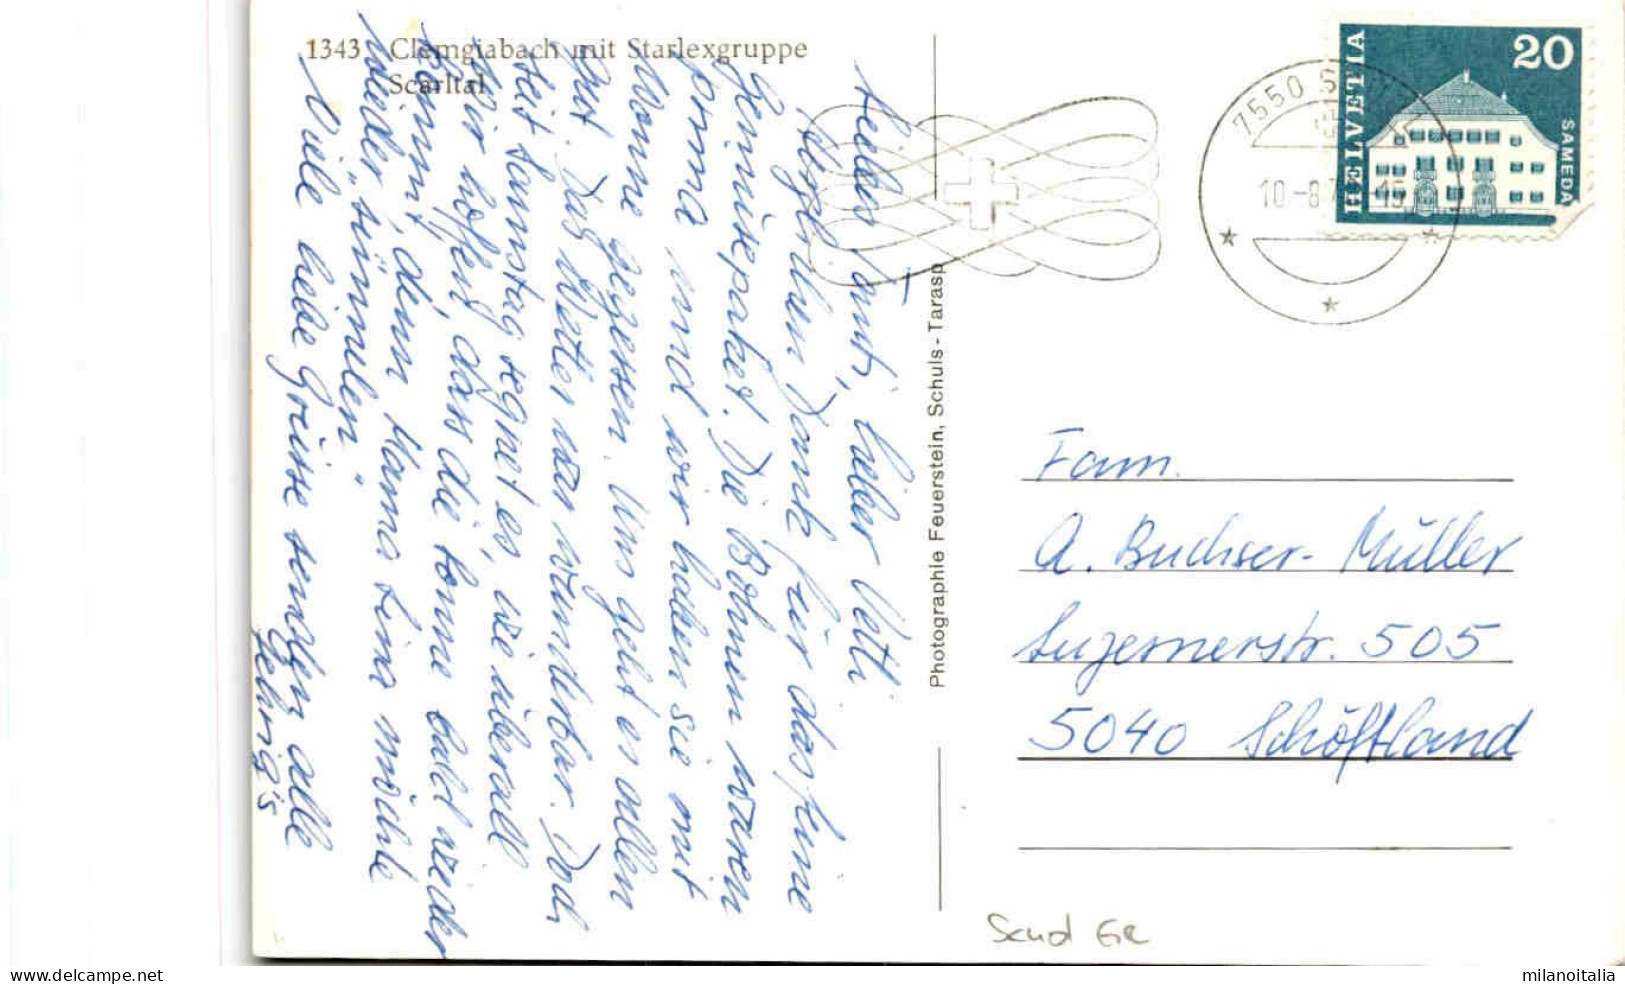 1343 Clemgiabach mit Starlexgruppe
Scarltal
Liebes Tanti, lieber Vetti
Vielen Dank für das feine
Gemüsepaket. Die Bohnen waren
prima und wir haben sie mit
Wonne gegessen. Uns geht es allen
gut. Das Wetter war wunderbar. Doch
seit Samstag regnet es, wie überall
Wir hoffen, dass die Sonne bald wieder
kommt, denn Mama Lina möchte
wieder "sünnelen"
Viele liebe Grüsse senden alle
Gehrig's
Photographie Feuerstein, Schuls - Tarasp
HELVETIA
20
SAMEDAN
7550 S
10-8.7
Fam.
A. Buchser-Müller
Luzernerstr. 505
5040 Schöftland
milanoitalia
www.delcampe.net